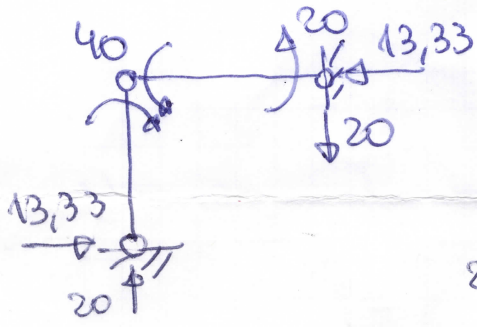 20
40
13,33
20
13,33
20